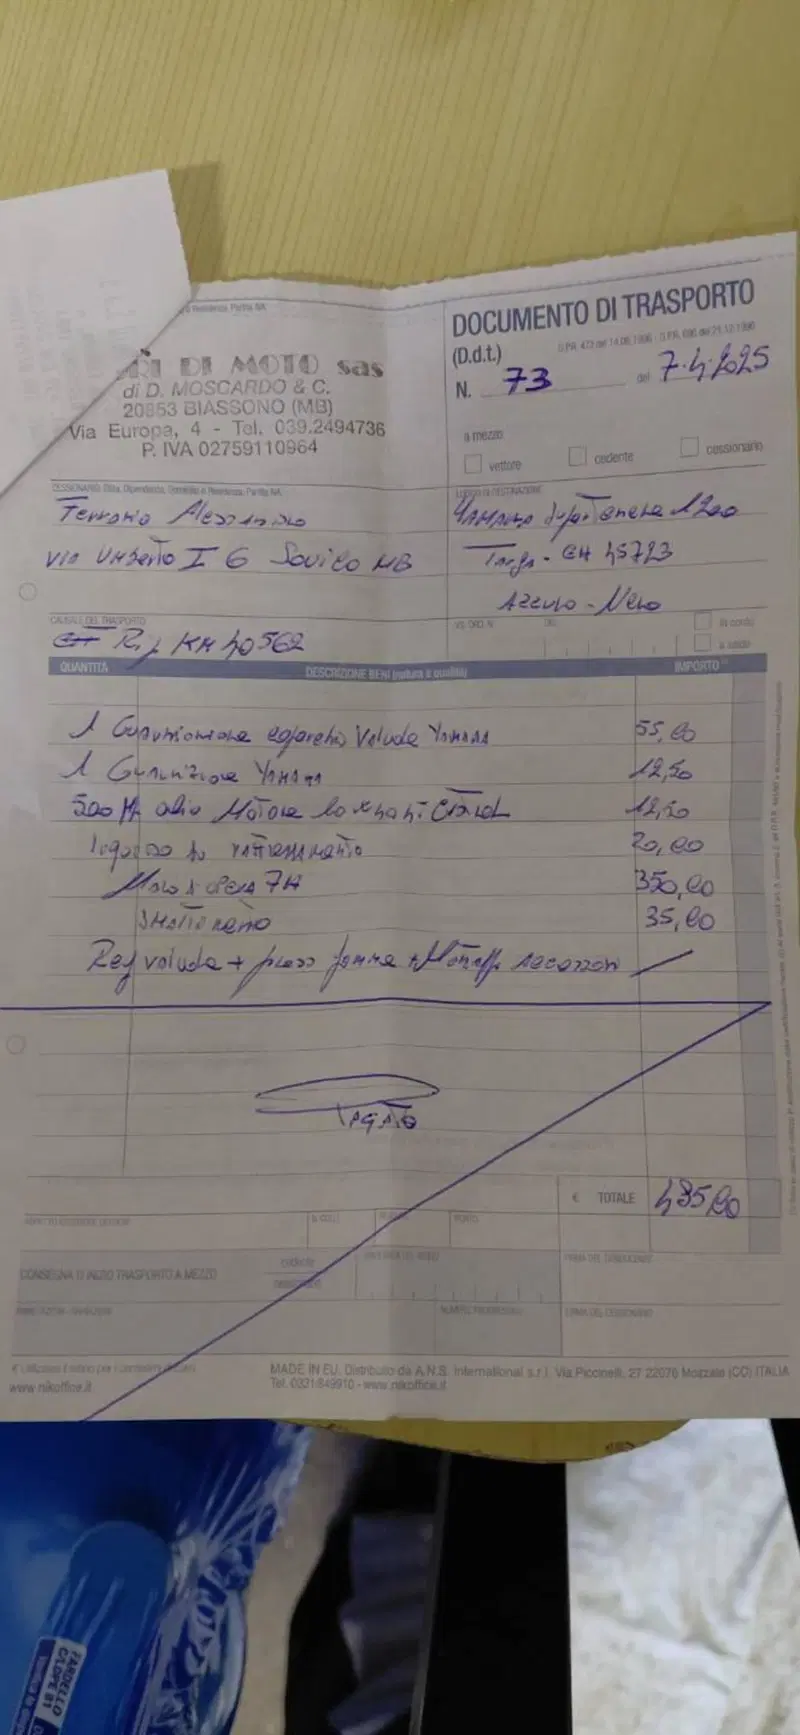 o Residenza, Partita IVA
RI DI MOTO sas
di D. MOSCARDO & C.
20853 BIASSONO (MB)
Via Europa, 4 - Tel. 039.2494736
P. IVA 02759110964
DOCUMENTO DI TRASPORTO
(D.d.t.)
D.P.R. 472 del 14.08.1996 - D.P.R. 696 del 21.12.1996
N. 73 del 7.4.2025
a mezzo
vettore cedente cessionario
CESSIONARIO: Ditta, Dipendenza, Domicilio o Residenza, Partita IVA
LUOGO DI DESTINAZIONE
Terraria Alessandro
via Umberto I 6 Sovico MB
Yamaha 1200
Targa - CH 45723
Azzurro - Nero
CAUSALE DEL TRASPORTO
Rip KM 40562
VS. ORD. N. DEL
in conto
a saldo
QUANTITÀ DESCRIZIONE BENI (natura e qualità) IMPORTO
1 Guarnizione coperchio Valvole Yamaha 55,00
1 Guarnizione Yamaha 12,50
500 Ml olio Motore 12,50
20,00
Mano d'opera 7H 350,00
Smaltimento 35,00
Reg valvole +
PAGATO
€ TOTALE 485,00
ASPETTO ESTERIORE DEI BENI
N. COLLI
PORTO
CONSEGNA O INIZIO TRASPORTO A MEZZO
cedente
FIRMA DEL CONDUCENTE
FIRMA DEL CESSIONARIO
MADE IN EU. Distribuito da A.N.S. International s.r.l. Via Piccinelli, 27 22076 Mozzate (CO) ITALIA
www.nikoffice.it
Tel. 0331/849910 - www.nikoffice.it
FARDELLO